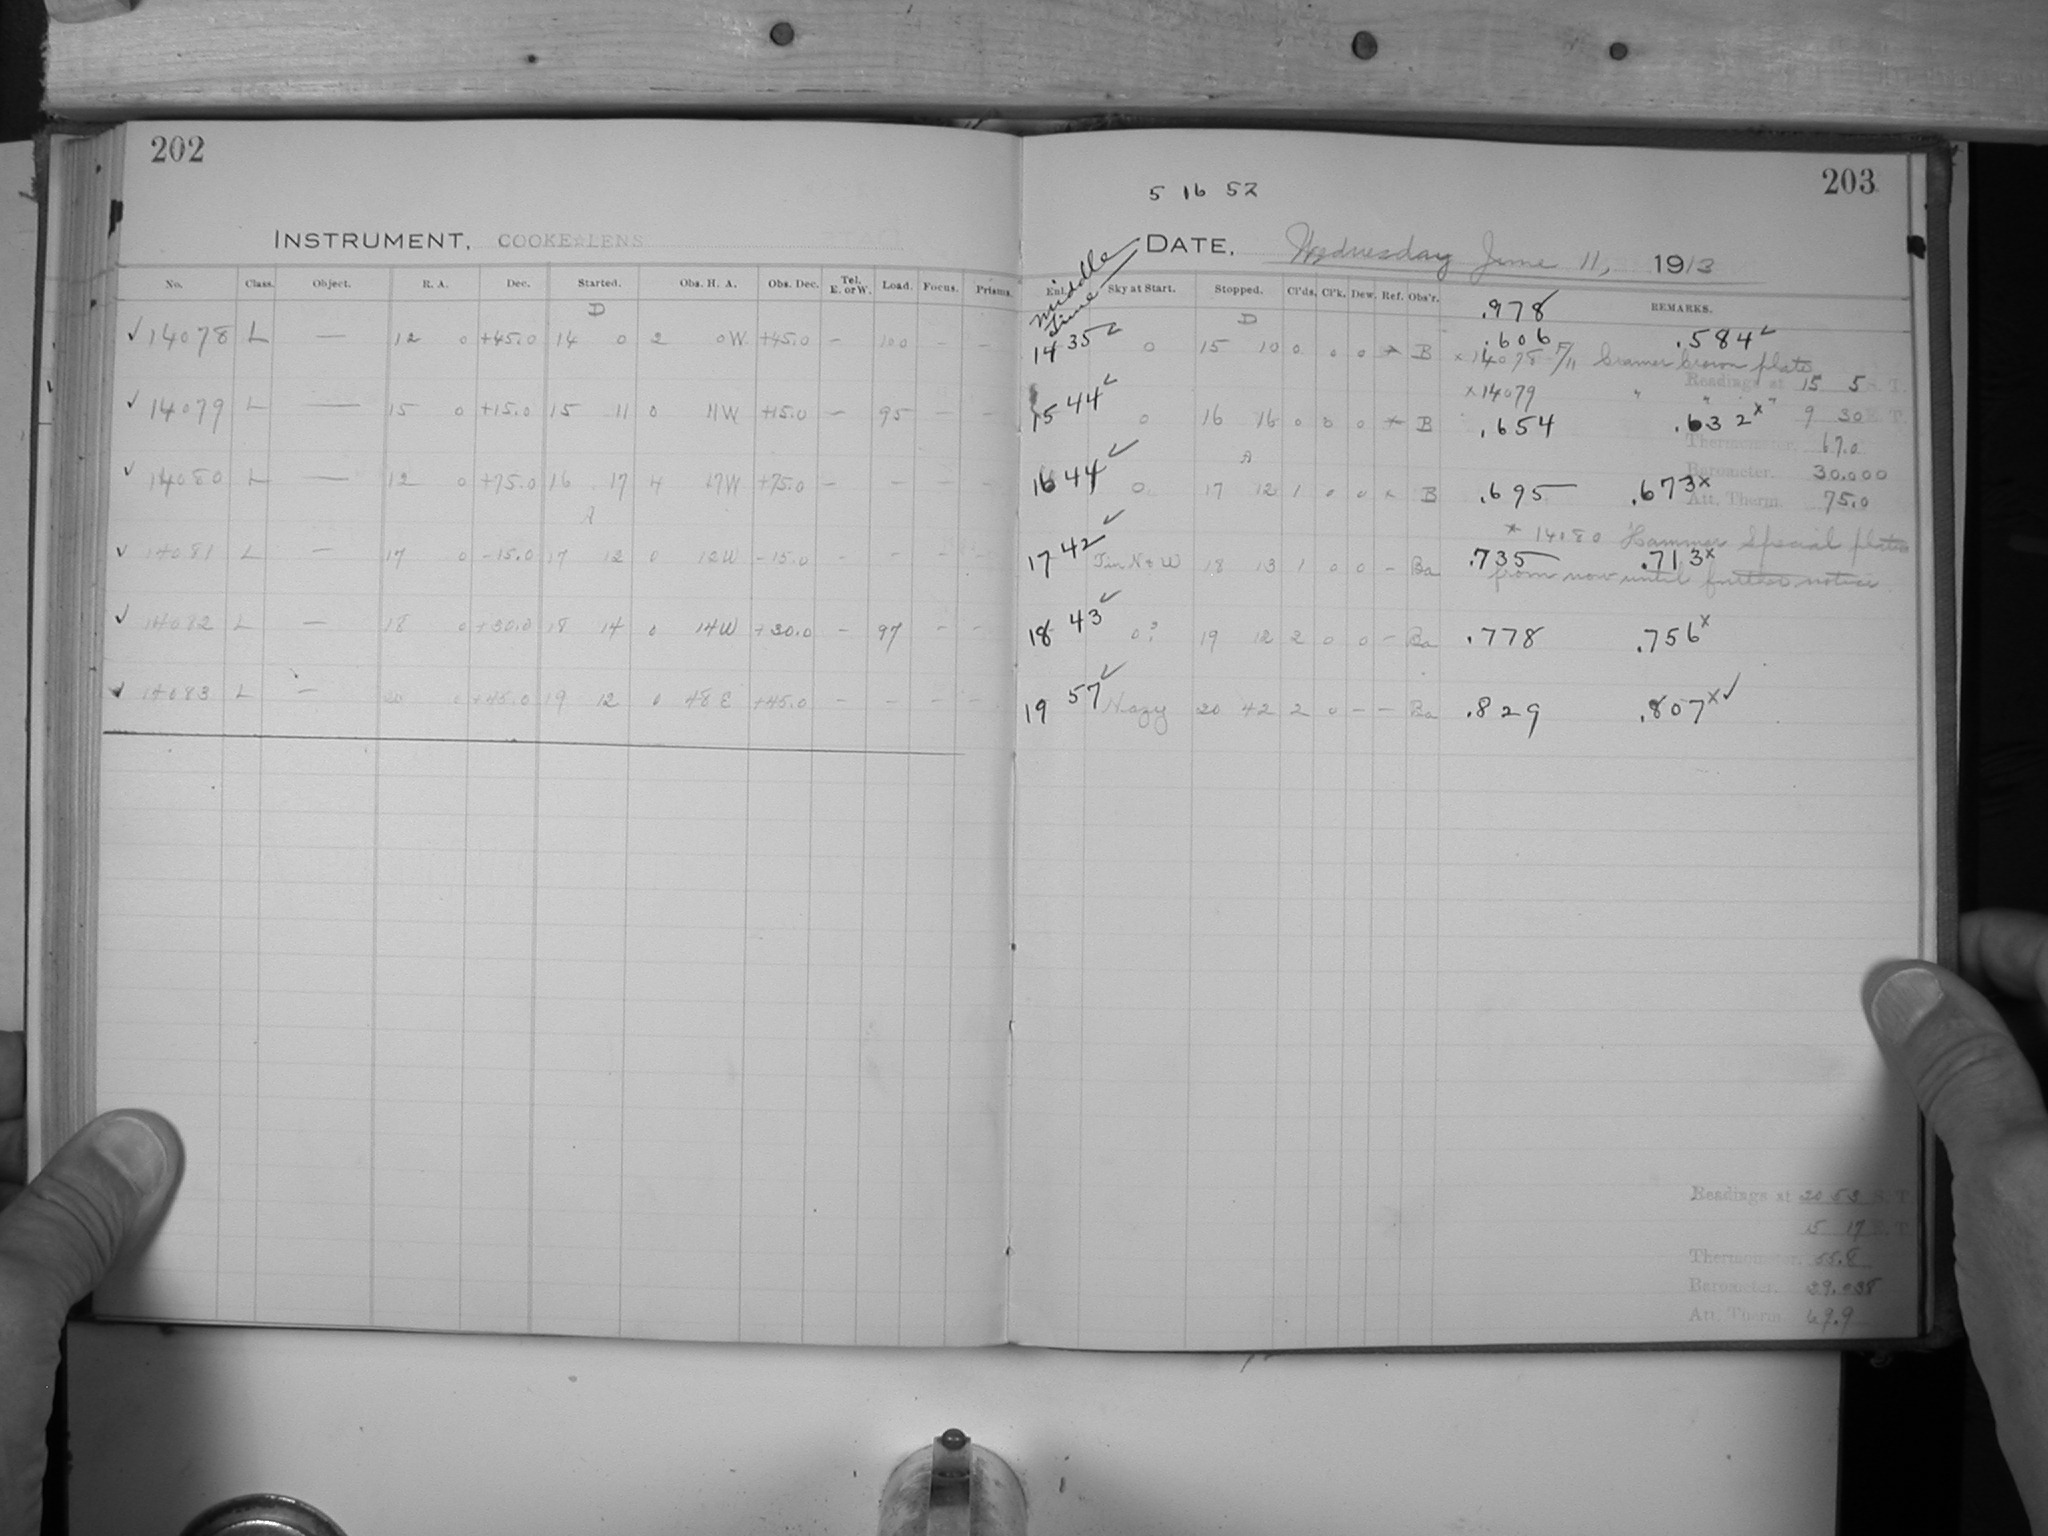 202
203
5 16 52
INSTRUMENT, COOKE LENS
DATE, Wednesday June 11, 1913
No. Class. Object. R. A. Dec. Started. Obs. H. A. Obs. Dec. Tel. E. or W. Load. Focus. Prisms.
Middle Time Sky at Start. Stopped. Cl'ds. Cl'k. Dew. Ref. Obs'r. .978 REMARKS.
D D
✓ 14078 L — 12 0 +45.0 14 0 2 0W +45.0 — 100 — — 14 35 ✓ 0 15 10 0 0 0 * B .606 .584 ✓
× 14078 - F/11 Cramer Crown plate
Readings at 15 5 S. T.
× 14079 " " "
✓ 14079 L — 15 0 +15.0 15 11 0 11W +15.0 — 95 — — 15 44 ✓ 0 16 16 0 0 0 * B .654 .632 × 9 30 E. T.
Thermometer. 67.0
A
Barometer. 30.000
✓ 14080 L — 12 0 +75.0 16 17 4 17W +75.0 — — — — 16 44 ✓ 0 17 12 1 0 0 * B .695 .673 × Att. Therm. 75.0
A
* 14080 Hammer Special plates
✓ 14081 L — 17 0 -15.0 17 12 0 12W -15.0 — — — — 17 42 ✓ N & W 18 13 1 0 0 — Ba .735 .713 ×
from now until further notice
✓ 14082 L — 18 0 +30.0 18 14 0 14W +30.0 — 97 — — 18 43 ✓ 0? 19 12 2 0 0 — Ba .778 .756 ×
✓ 14083 L — 20 0 +45.0 19 12 0 48E +45.0 — — — — 19 57 ✓ Hazy 20 42 2 0 — — Ba .829 .807 × ✓
Readings at 20 53 S. T.
15 17 E. T.
Thermometer. 55.8
Barometer. 29.038
Att. Therm. 69.9